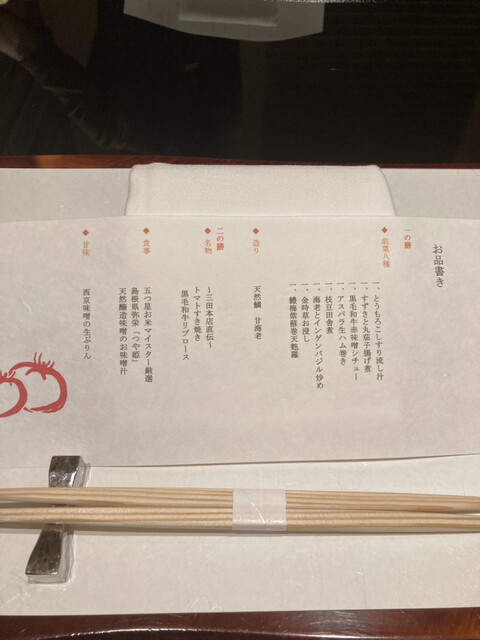 お品書き
一の膳
◆前菜八種
一、とうもろこしすり流し汁
一、すずきと丸茄子揚げ煮
一、黒毛和牛赤味噌シチュー
一、アスパラ生ハム巻き
一、枝豆田舎煮
一、海老とインゲンバジル炒め
一、金時草お浸し
一、鱧梅紫蘇巻天麩羅
◆造り
天然鯛 甘海老
二の膳
◆名物
〜三田本店直伝〜
トマトすき焼き
黒毛和牛リブロース
◆食事
五つ星お米マイスター厳選
島根県弥栄「つや姫」
天然醸造味噌のお味噌汁
◆甘味
西京味噌の生ぷりん